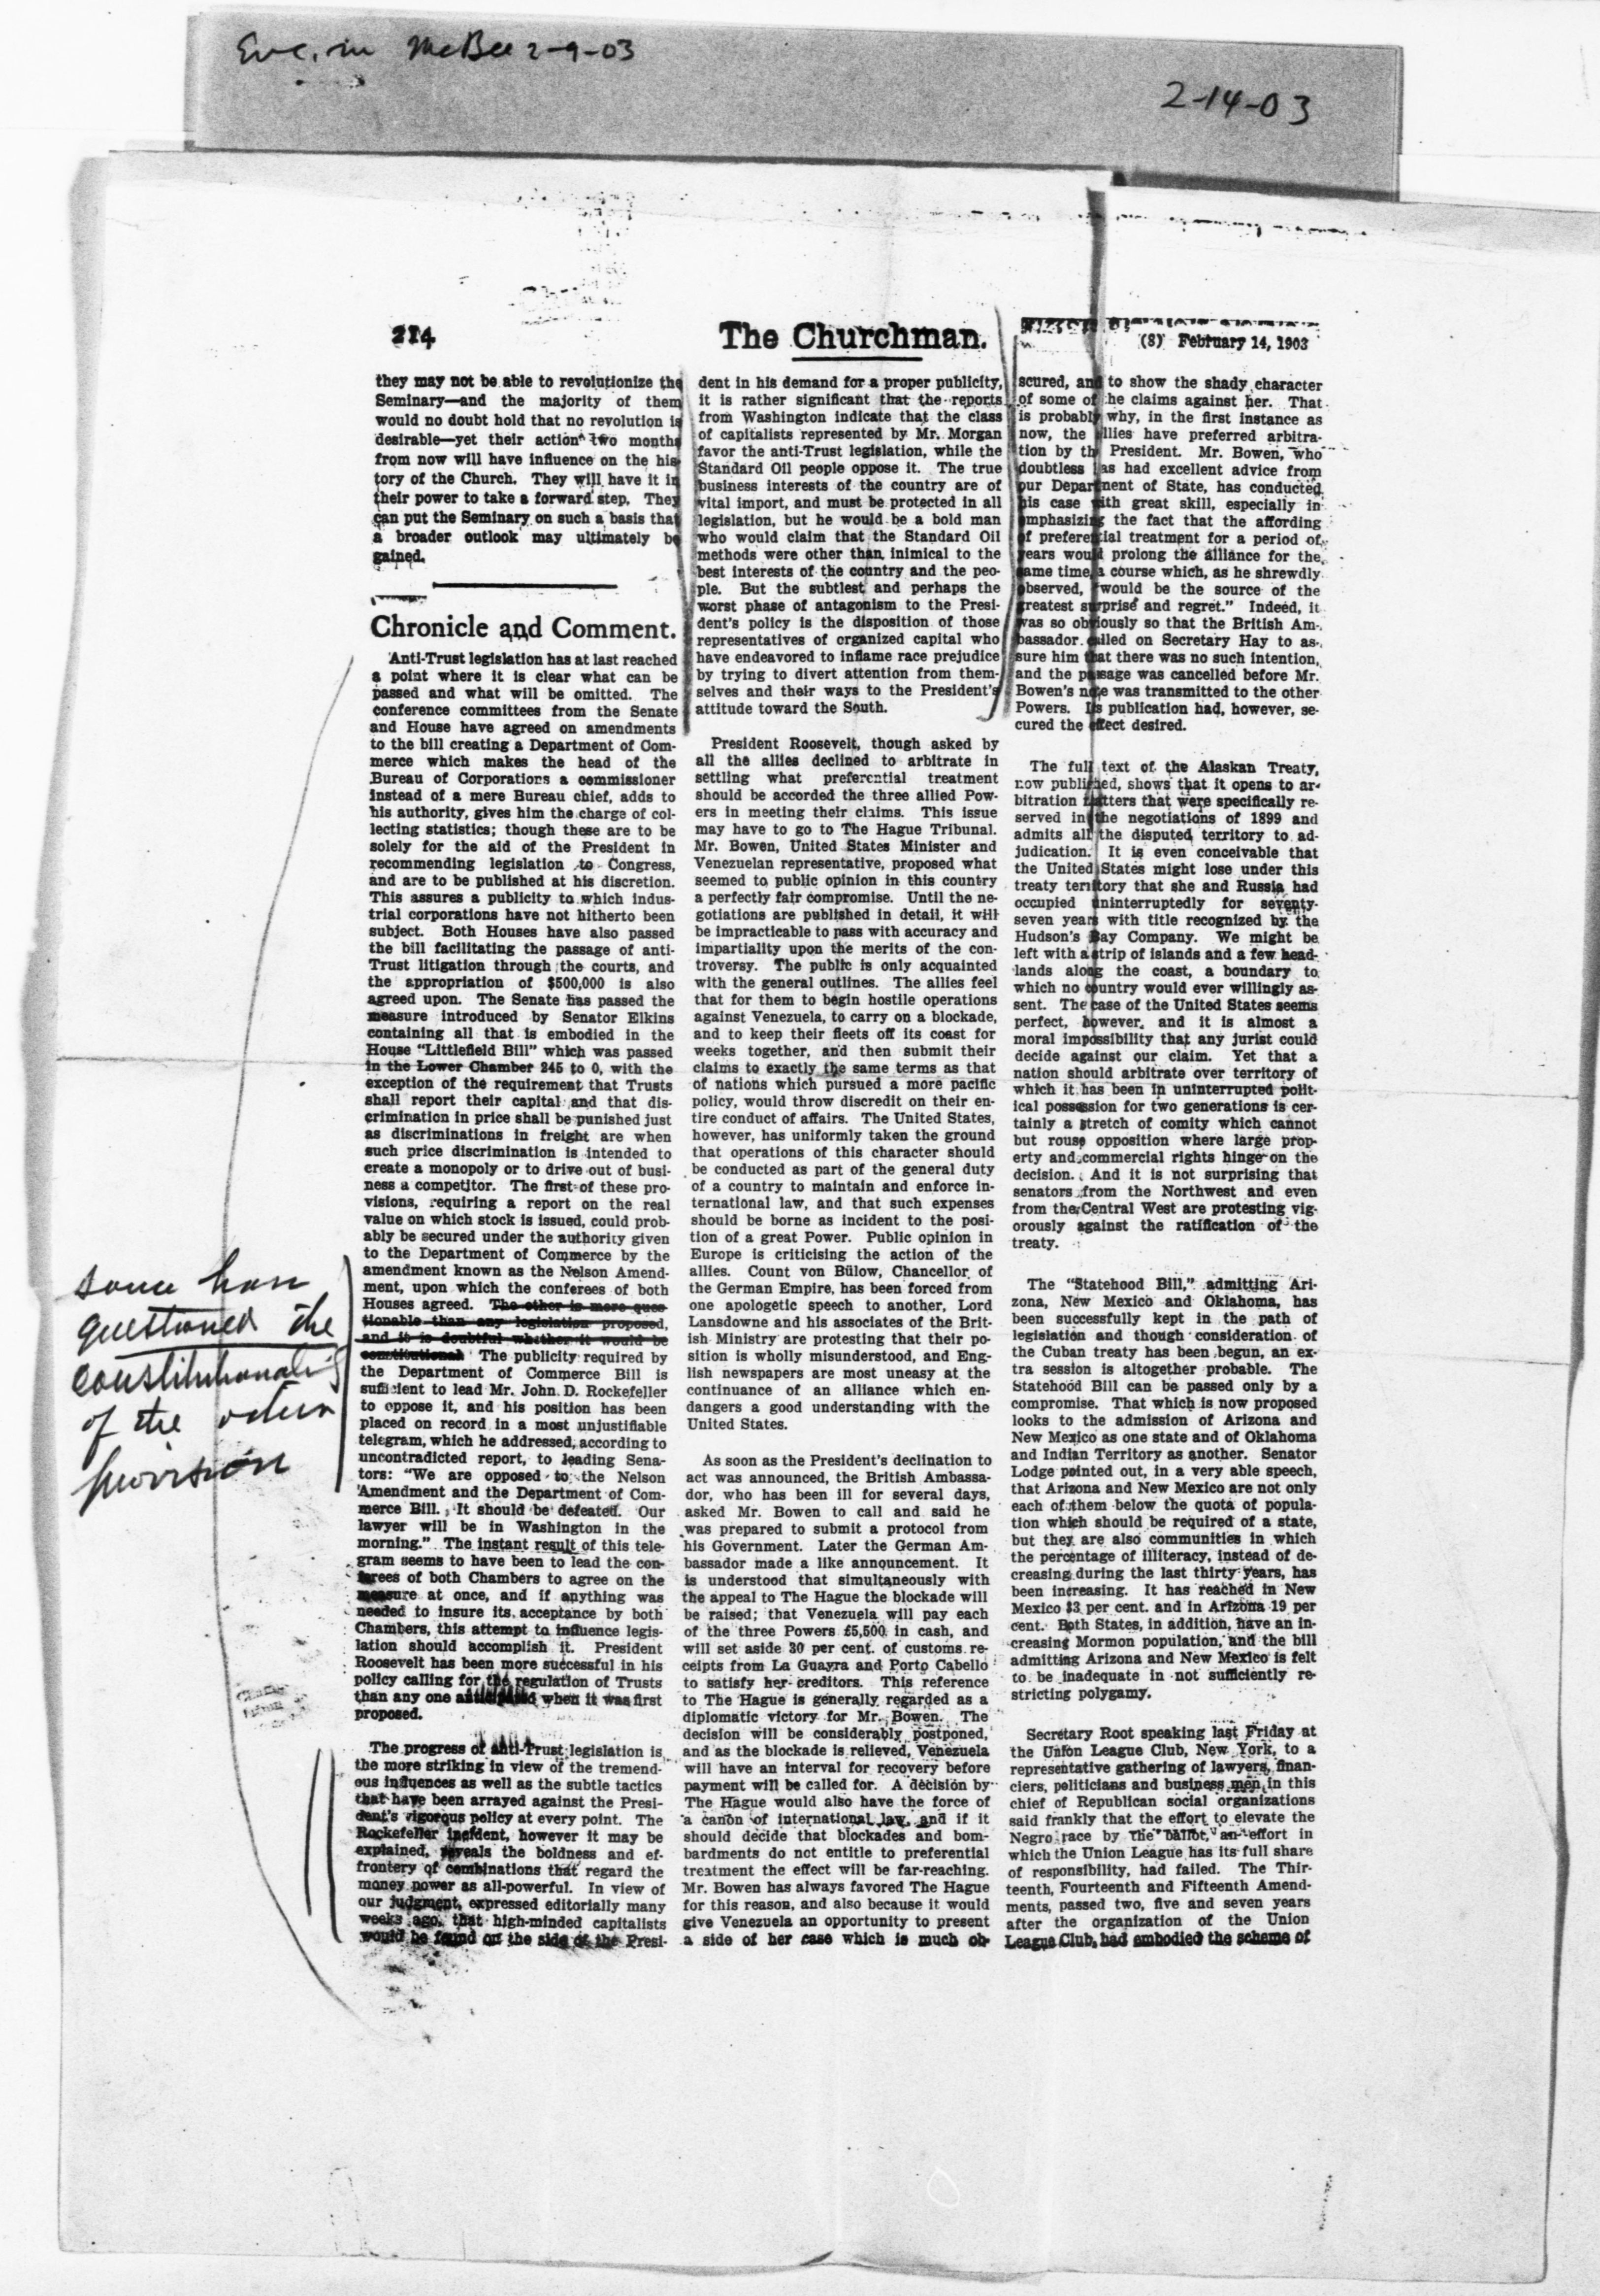 Enc. in McBee 2-9-03
2-14-03
214
The Churchman.
(8) February 14, 1903
they may not be able to revolutionize the
Seminary—and the majority of them
would no doubt hold that no revolution is
desirable—yet their action two months
from now will have influence on the his-
tory of the Church. They will have it in
their power to take a forward step. They
can put the Seminary on such a basis that
a broader outlook may ultimately be
gained.
Chronicle and Comment.
Anti-Trust legislation has at last reached
a point where it is clear what can be
passed and what will be omitted. The
conference committees from the Senate
and House have agreed on amendments
to the bill creating a Department of Com-
merce which makes the head of the
Bureau of Corporations a commissioner
instead of a mere Bureau chief, adds to
his authority, gives him the charge of col-
lecting statistics; though these are to be
solely for the aid of the President in
recommending legislation to Congress,
and are to be published at his discretion.
This assures a publicity to which indus-
trial corporations have not hitherto been
subject. Both Houses have also passed
the bill facilitating the passage of anti-
Trust litigation through the courts, and
the appropriation of $500,000 is also
agreed upon. The Senate has passed the
measure introduced by Senator Elkins
containing all that is embodied in the
House "Littlefield Bill" which was passed
in the Lower Chamber 245 to 0, with the
exception of the requirement that Trusts
shall report their capital and that dis-
crimination in price shall be punished just
as discriminations in freight are when
such price discrimination is intended to
create a monopoly or to drive out of busi-
ness a competitor. The first of these pro-
visions, requiring a report on the real
value on which stock is issued, could prob-
ably be secured under the authority given
to the Department of Commerce by the
amendment known as the Nelson Amend-
ment, upon which the conferees of both
Houses agreed. The other is more ques-
tionable than any legislation proposed,
and it is doubtful whether it would be
constitutional. The publicity required by
the Department of Commerce Bill is
sufficient to lead Mr. John D. Rockefeller
to oppose it, and his position has been
placed on record in a most unjustifiable
telegram, which he addressed, according to
uncontradicted report, to leading Sena-
tors: "We are opposed to the Nelson
Amendment and the Department of Com-
merce Bill. It should be defeated. Our
lawyer will be in Washington in the
morning." The instant result of this tele-
gram seems to have been to lead the con-
ferees of both Chambers to agree on the
measure at once, and if anything was
needed to insure its acceptance by both
Chambers, this attempt to influence legis-
lation should accomplish it. President
Roosevelt has been more successful in his
policy calling for the regulation of Trusts
than any one anticipated when it was first
proposed.
The progress of anti-Trust legislation is
the more striking in view of the tremend-
ous influences as well as the subtle tactics
that have been arrayed against the Presi-
dent's vigorous policy at every point. The
Rockefeller incident, however it may be
explained, reveals the boldness and ef-
frontery of combinations that regard the
money power as all-powerful. In view of
our judgment, expressed editorially many
weeks ago, that high-minded capitalists
would be found on the side of the Presi-
some have
questioned the
constitutionality
of the other
provision
dent in his demand for a proper publicity,
it is rather significant that the reports
from Washington indicate that the class
of capitalists represented by Mr. Morgan
favor the anti-Trust legislation, while the
Standard Oil people oppose it. The true
business interests of the country are of
vital import, and must be protected in all
legislation, but he would be a bold man
who would claim that the Standard Oil
methods were other than inimical to the
best interests of the country and the peo-
ple. But the subtlest and perhaps the
worst phase of antagonism to the Presi-
dent's policy is the disposition of those
representatives of organized capital who
have endeavored to inflame race prejudice
by trying to divert attention from them-
selves and their ways to the President's
attitude toward the South.
President Roosevelt, though asked by
all the allies declined to arbitrate in
settling what preferential treatment
should be accorded the three allied Pow-
ers in meeting their claims. This issue
may have to go to The Hague Tribunal.
Mr. Bowen, United States Minister and
Venezuelan representative, proposed what
seemed to public opinion in this country
a perfectly fair compromise. Until the ne-
gotiations are published in detail, it will
be impracticable to pass with accuracy and
impartiality upon the merits of the con-
troversy. The public is only acquainted
with the general outlines. The allies feel
that for them to begin hostile operations
against Venezuela, to carry on a blockade,
and to keep their fleets off its coast for
weeks together, and then submit their
claims to exactly the same terms as that
of nations which pursued a more pacific
policy, would throw discredit on their en-
tire conduct of affairs. The United States,
however, has uniformly taken the ground
that operations of this character should
be conducted as part of the general duty
of a country to maintain and enforce in-
ternational law, and that such expenses
should be borne as incident to the posi-
tion of a great Power. Public opinion in
Europe is criticising the action of the
allies. Count von Bülow, Chancellor of
the German Empire, has been forced from
one apologetic speech to another, Lord
Lansdowne and his associates of the Brit-
ish Ministry are protesting that their po-
sition is wholly misunderstood, and Eng-
lish newspapers are most uneasy at the
continuance of an alliance which en-
dangers a good understanding with the
United States.
As soon as the President's declination to
act was announced, the British Ambassa-
dor, who has been ill for several days,
asked Mr. Bowen to call and said he
was prepared to submit a protocol from
his Government. Later the German Am-
bassador made a like announcement. It
is understood that simultaneously with
the appeal to The Hague the blockade will
be raised; that Venezuela will pay each
of the three Powers £5,500 in cash, and
will set aside 30 per cent. of customs re-
ceipts from La Guayra and Porto Cabello
to satisfy her creditors. This reference
to The Hague is generally regarded as a
diplomatic victory for Mr. Bowen. The
decision will be considerably postponed,
and as the blockade is relieved, Venezuela
will have an interval for recovery before
payment will be called for. A decision by
The Hague would also have the force of
a canon of international law, and if it
should decide that blockades and bom-
bardments do not entitle to preferential
treatment the effect will be far-reaching.
Mr. Bowen has always favored The Hague
for this reason, and also because it would
give Venezuela an opportunity to present
a side of her case which is much ob-
scured, and to show the shady character
of some of the claims against her. That
is probably why, in the first instance as
now, the allies have preferred arbitra-
tion by the President. Mr. Bowen, who
doubtless has had excellent advice from
our Department of State, has conducted
his case with great skill, especially in
emphasizing the fact that the affording
of preferential treatment for a period of
years would prolong the alliance for the
same time, a course which, as he shrewdly
observed, "would be the source of the
greatest surprise and regret." Indeed, it
was so obviously so that the British Am-
bassador called on Secretary Hay to as-
sure him that there was no such intention,
and the passage was cancelled before Mr.
Bowen's note was transmitted to the other
Powers. Its publication had, however, se-
cured the effect desired.
The full text of the Alaskan Treaty,
now published, shows that it opens to ar-
bitration matters that were specifically re-
served in the negotiations of 1899 and
admits all the disputed territory to ad-
judication. It is even conceivable that
the United States might lose under this
treaty territory that she and Russia had
occupied uninterruptedly for seventy-
seven years with title recognized by the
Hudson's Bay Company. We might be
left with a strip of islands and a few head-
lands along the coast, a boundary to
which no country would ever willingly as-
sent. The case of the United States seems
perfect, however, and it is almost a
moral impossibility that any jurist could
decide against our claim. Yet that a
nation should arbitrate over territory of
which it has been in uninterrupted polit-
ical possession for two generations is cer-
tainly a stretch of comity which cannot
but rouse opposition where large prop-
erty and commercial rights hinge on the
decision. And it is not surprising that
senators from the Northwest and even
from the Central West are protesting vig-
orously against the ratification of the
treaty.
The "Statehood Bill," admitting Ari-
zona, New Mexico and Oklahoma, has
been successfully kept in the path of
legislation and though consideration of
the Cuban treaty has been begun, an ex-
tra session is altogether probable. The
Statehood Bill can be passed only by a
compromise. That which is now proposed
looks to the admission of Arizona and
New Mexico as one state and of Oklahoma
and Indian Territory as another. Senator
Lodge pointed out, in a very able speech,
that Arizona and New Mexico are not only
each of them below the quota of popula-
tion which should be required of a state,
but they are also communities in which
the percentage of illiteracy, instead of de-
creasing during the last thirty years, has
been increasing. It has reached in New
Mexico 33 per cent. and in Arizona 19 per
cent. Both States, in addition, have an in-
creasing Mormon population, and the bill
admitting Arizona and New Mexico is felt
to be inadequate in not sufficiently re-
stricting polygamy.
Secretary Root speaking last Friday at
the Union League Club, New York, to a
representative gathering of lawyers, finan-
ciers, politicians and business men in this
chief of Republican social organizations
said frankly that the effort to elevate the
Negro race by the ballot, an effort in
which the Union League has its full share
of responsibility, had failed. The Thir-
teenth, Fourteenth and Fifteenth Amend-
ments, passed two, five and seven years
after the organization of the Union
League Club, had embodied the scheme of